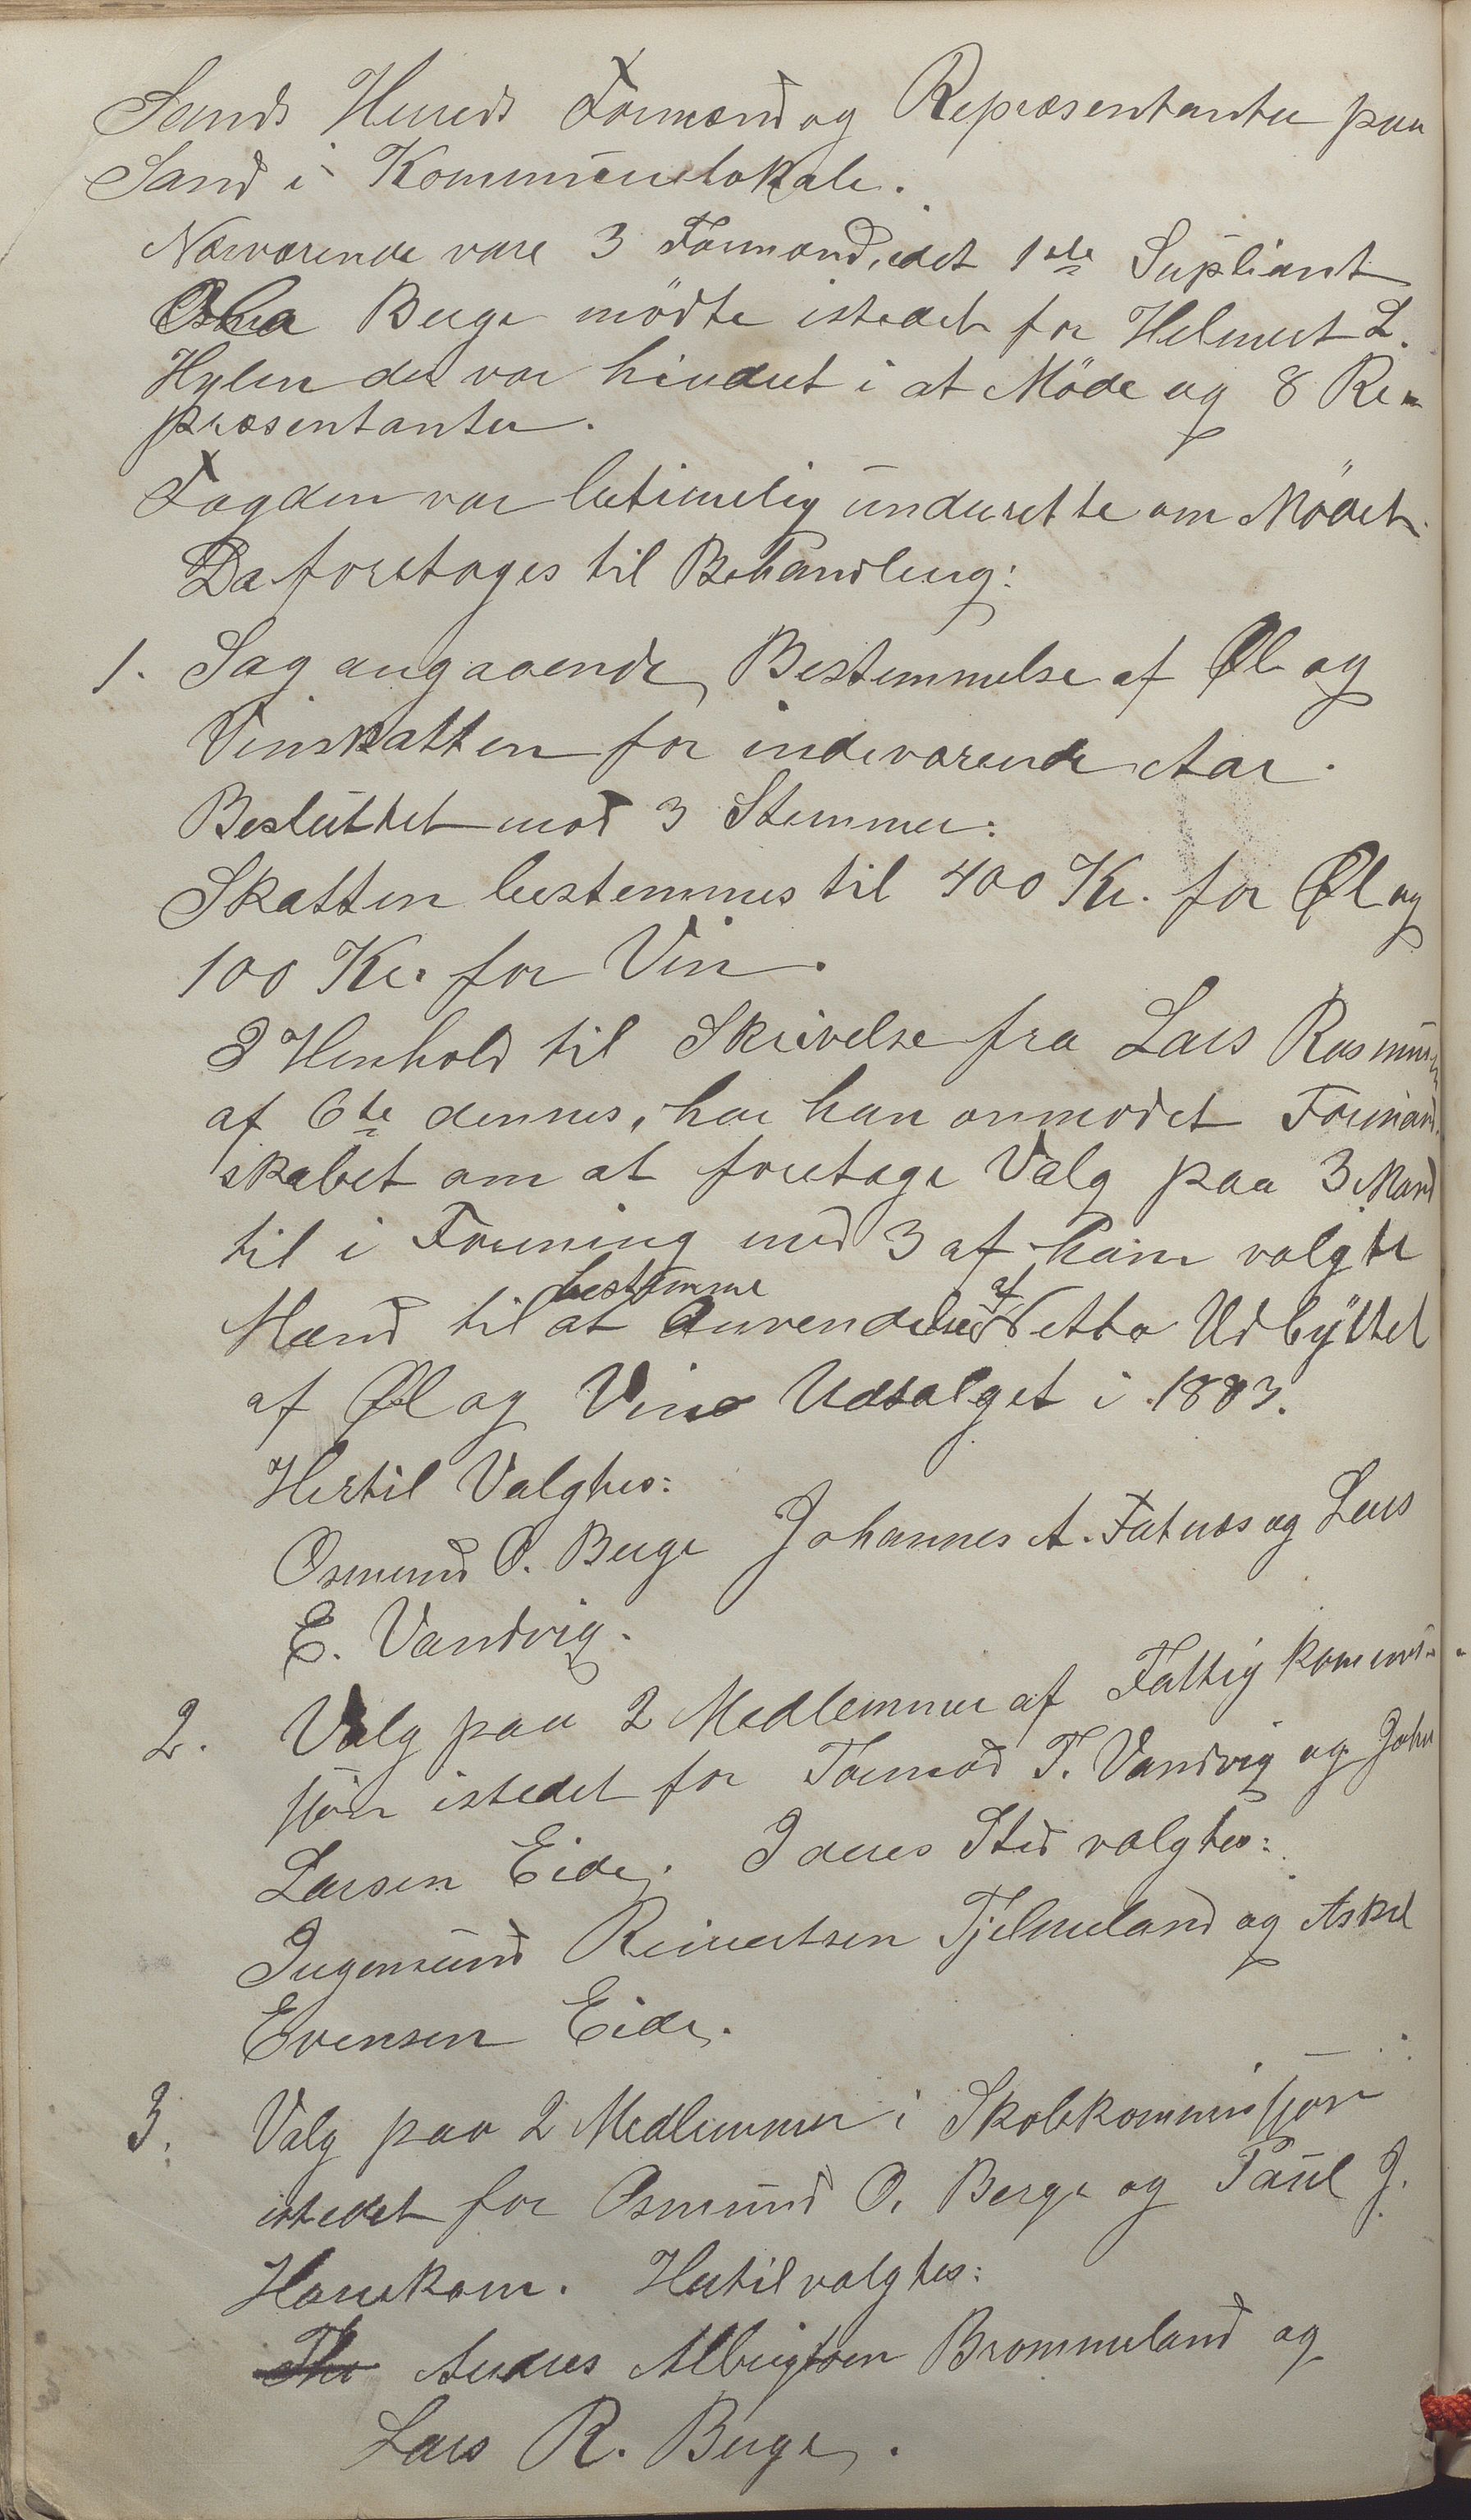 Sands Herreds Formænd og Repræsentanter paa
Sand i Kommunelokale.
Nærværende vare 3 Formænd, idet 1ste Supliant
Berge mödte istedet for Helmert L.
Hylen der var hindret i at Möde og 8 Re-
præsentanter.
Fogden var betimelig underrettet om Mödet.
Da foretoges til Behandling:
1. Sag angaaende Bestemmelse af Øl og
Vinskatten for indeværende Aar.
Besluttet mod 3 Stemmer:
Skatten bestemmes til 400 Kr. for Øl og
100 Kr. for Vin.
I Henhold til Skrivelse fra Lars Rasmussen
af 6te dennes, har han anmodet Formand-
skabet om at foretage Valg paa 3 Mænd
til i Forening med 3 af ham valgte
Mænd til at bestemme Anvendelse af Netto Udbyttet
af Øl og Vin Udsalget i 1883.
Hertil Valgtes:
Osmund O. Berge Johannes A. Fatnæs og Lars
E. Vandvig.
2. Valg paa 2 Medlemmer af Fattigkommi-
sjon istedet for Tormod T. Vandvig og John
Larsen Eide. I deres Sted valgtes:
Ingemund Reinertsen Tjelmeland og Askel
Evensen Eide.
3. Valg paa 2 Medlemmer i Skolekommisjon
istedet for Osmund O. Berge og Paul J.
Honskom. Hertil valgtes:
The Andres Albrigtsen Brommeland og
Lars R. Berge.